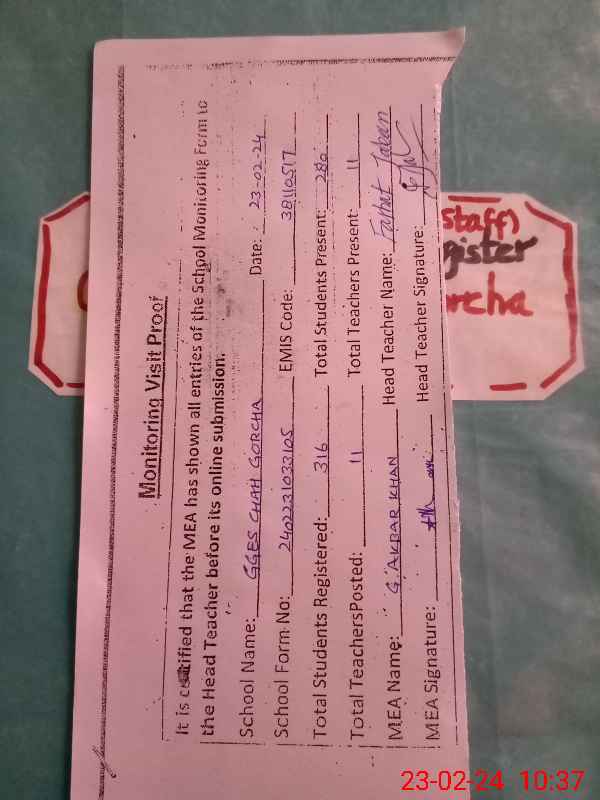 Monitoring Visit Proof
It is certified that the MEA has shown all entries of the School Monitoring Form to
the Head Teacher before its online submission.
School Name: GGES CHAH GORCHA Date: 23-02-24
School Form No: 2402231033105 EMIS Code: 38110517
Total Students Registered: 316 Total Students Present: 280
Total TeachersPosted: 11 Total Teachers Present: 11
MEA Name: G. AKBAR KHAN Head Teacher Name: Farhat Jabeen
MEA Signature: Head Teacher Signature:
staff
gister
rcha
23-02-24 10:37